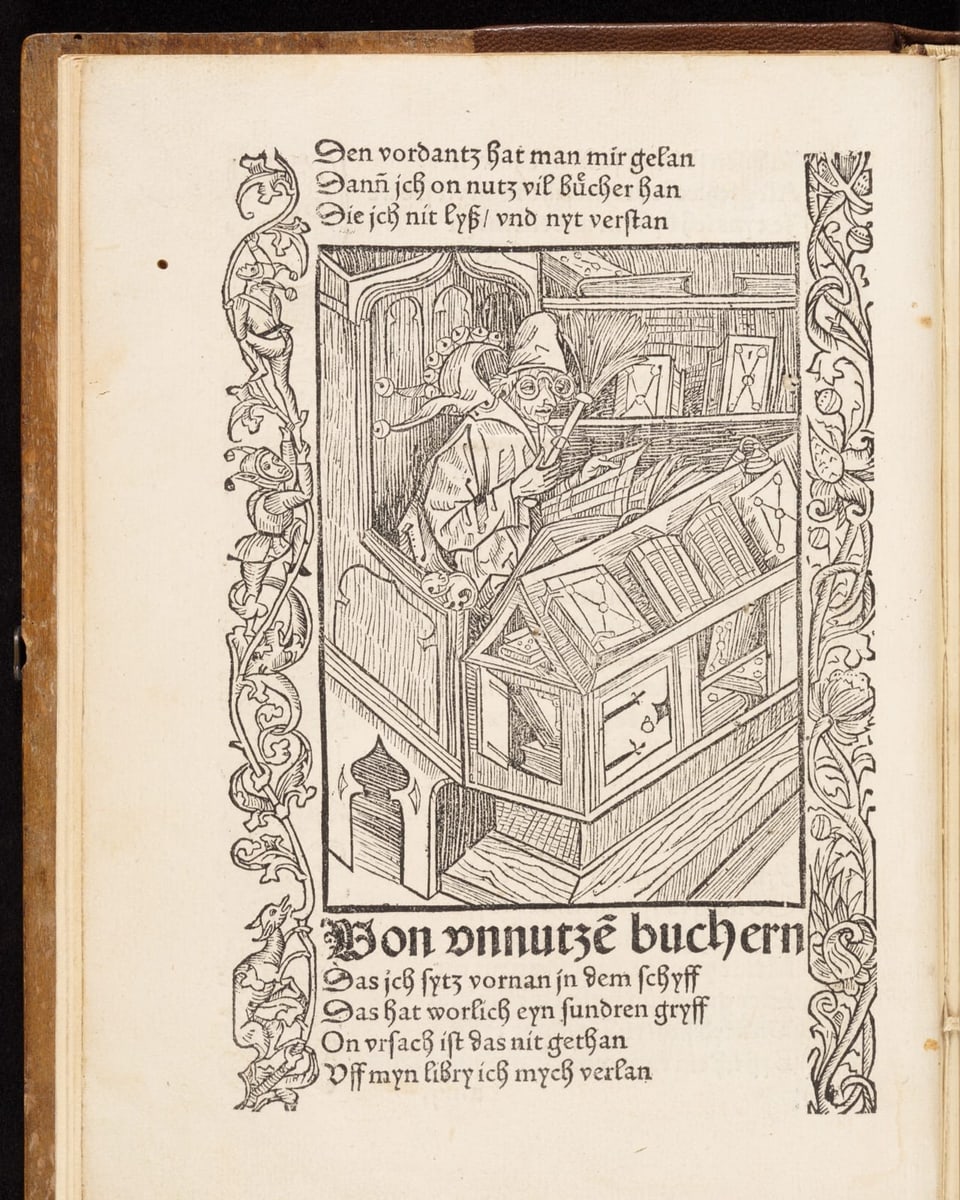 Den vordantz hat man mir gelan
Dann̄ jch on nutz vil bůcher han
Die jch nit lyß / vnd nyt verstan
Von vnnutzē buchern
Das jch sytz vornan jn dem schyff
Das hat worlich eyn sundren gryff
On vrsach ist das nit gethan
Vff myn libry ich mych verlan